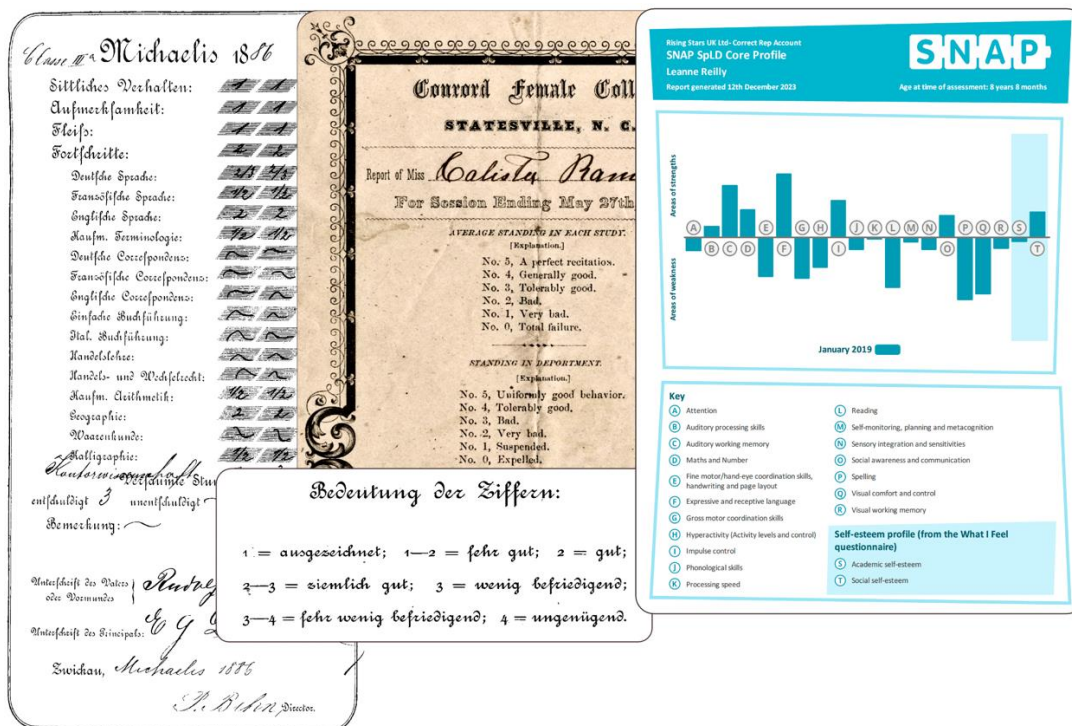 Classe IIIa Michaelis 1886
Sittliches Verhalten: 1 1
Aufmerksamkeit: 1 1
Fleiß: 1 1
Fortschritte: 2 2
Deutsche Sprache: 2/3 2/3
Französische Sprache: 1/2 1/2
Englische Sprache: 2 2
Kaufm. Terminologie: 1/2 1/2
Deutsche Correspondenz:
Französische Correspondenz:
Englische Correspondenz:
Einfache Buchführung:
Ital. Buchführung:
Handelslehre:
Handels- und Wechselrecht:
Kaufm. Arithmetik: 1/2 1/2
Geographie: 2 2
Waarenkunde:
Kalligraphie: 1/2 1/2
Kontorwissenschaft
Versäumte Stun
entschuldigt 3 unentschuldigt
Bemerkung:
Unterschrift des Vaters
oder Vormundes
Rudolf
Unterschrift des Principals: E G
Zwickau, Michaelis 1886
Director.
Concord Female Coll
STATESVILLE, N. C.
Report of Miss Calista Ram
For Session Ending May 27th
AVERAGE STANDING IN EACH STUDY.
[Explanation.]
No. 5, A perfect recitation.
No. 4, Generally good.
No. 3, Tolerably good.
No. 2, Bad.
No. 1, Very bad.
No. 0, Total failure.
STANDING IN DEPORTMENT.
[Explanation.]
No. 5, Uniformly good behavior.
No. 4, Tolerably good.
No. 3, Bad.
No. 2, Very bad.
No. 1, Suspended.
No. 0, Expelled.
Bedeutung der Ziffern:
1 = ausgezeichnet; 1—2 = sehr gut; 2 = gut;
2—3 = ziemlich gut; 3 = wenig befriedigend;
3—4 = sehr wenig befriedigend; 4 = ungenügend.
Rising Stars UK Ltd- Correct Rep Account
SNAP SpLD Core Profile
Leanne Reilly
Report generated 12th December 2023
SNAP
Age at time of assessment: 8 years 8 months
Areas of strengths
Areas of weakness
A B C D E F G H I J K L M N O P Q R S T
January 2019
Key
A Attention
B Auditory processing skills
C Auditory working memory
D Maths and Number
E Fine motor/hand-eye coordination skills,
handwriting and page layout
F Expressive and receptive language
G Gross motor coordination skills
H Hyperactivity (Activity levels and control)
I Impulse control
J Phonological skills
K Processing speed
L Reading
M Self-monitoring, planning and metacognition
N Sensory integration and sensitivities
O Social awareness and communication
P Spelling
Q Visual comfort and control
R Visual working memory
Self-esteem profile (from the What I Feel
questionnaire)
S Academic self-esteem
T Social self-esteem